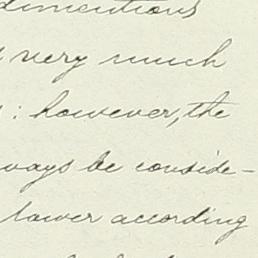 dimentions
very much
: however, the
ways be conside-
lower according